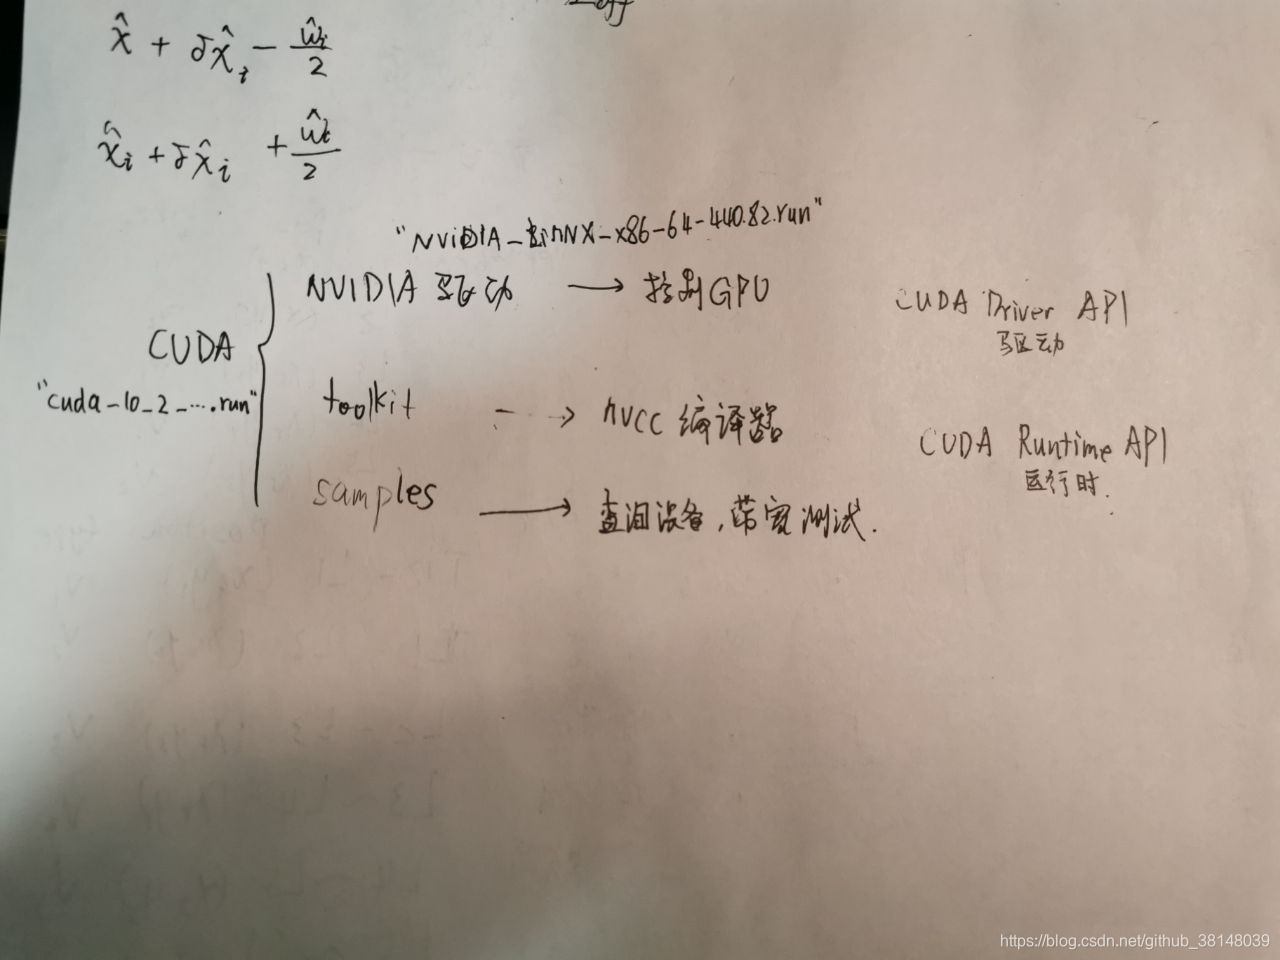 x̂ + δx̂ᵢ − ŵᵢ/2
x̂ᵢ + δx̂ᵢ + ŵᵢ/2
"NViDIA_LinNX-x86-64-440.82.run"
NVIDIA 驱动 → 控制GPU
CUDA
"cuda_10_2_....run"
toolkit → nvcc 编译器
samples → 查询设备，带宽测试.
CUDA Driver API
驱动
CUDA Runtime API
运行时.
https://blog.csdn.net/github_38148039